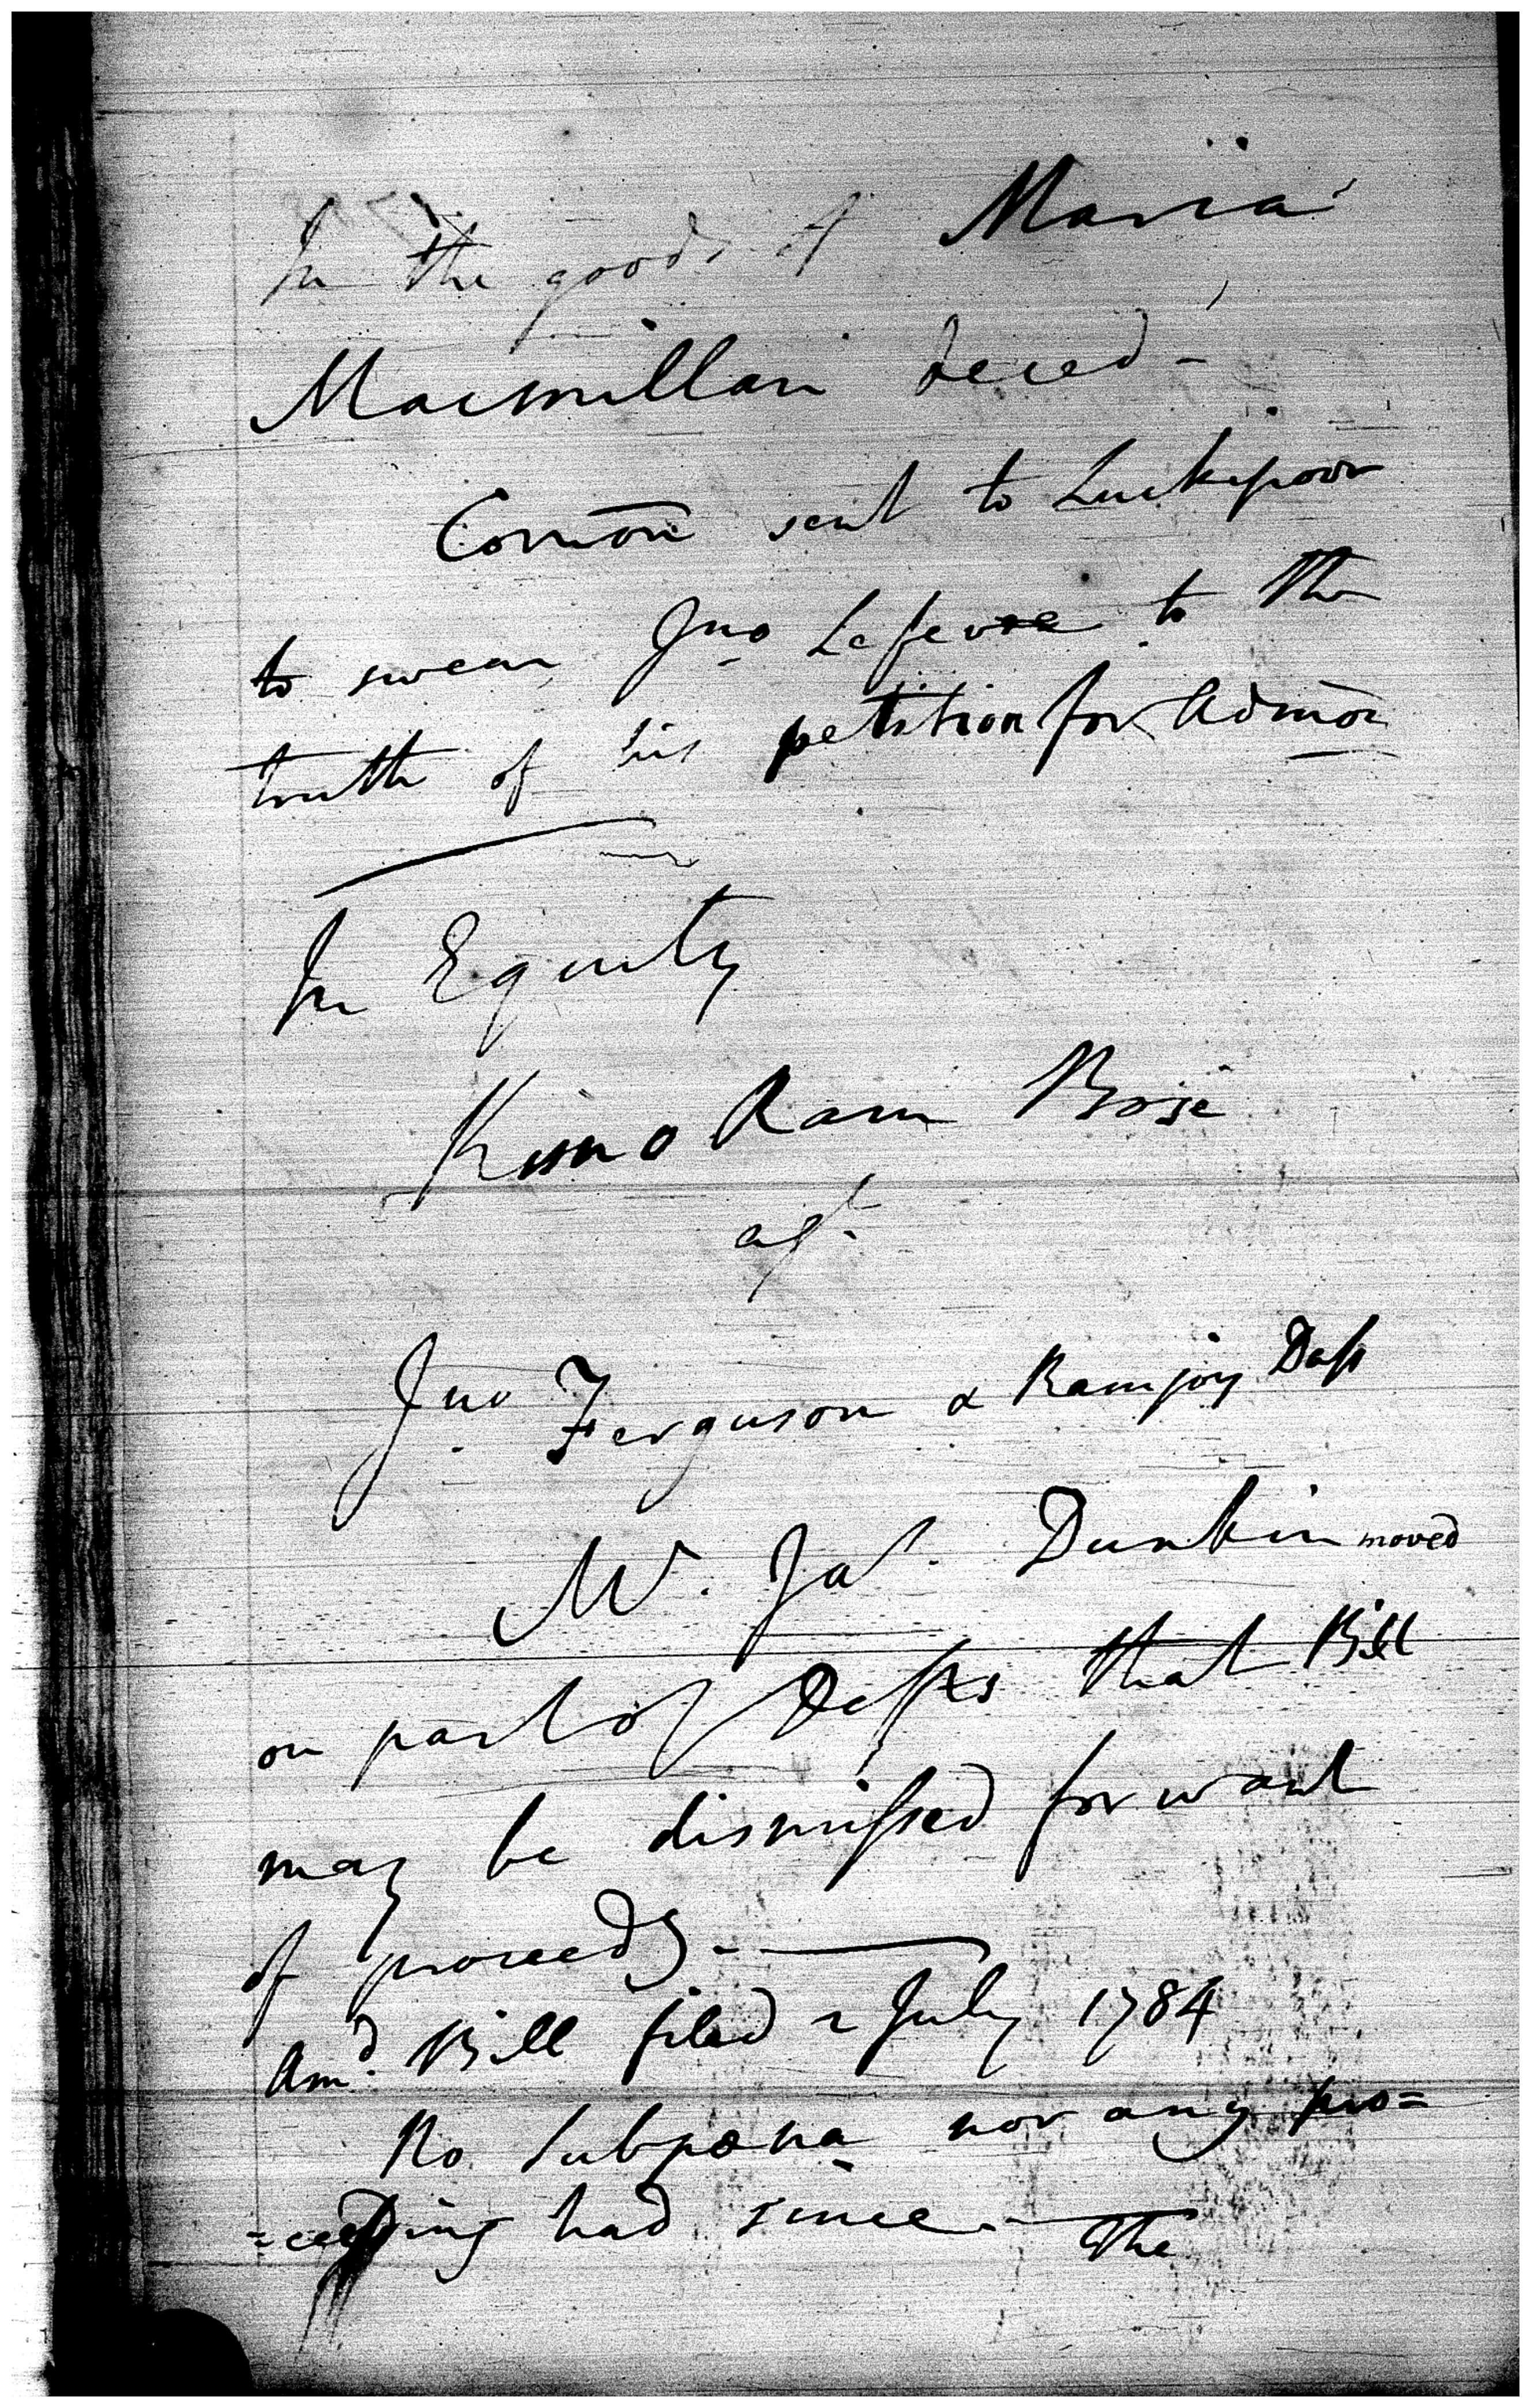 In the goods of Maria
Macmillan deced -
Comōn sent to Luckipoor
to swear Jno Lefevre to the
truth of his petition for Admōn
In Equity
Kisno Ram Bose
agt.
Jno Ferguson & Ramjoy Dass
Mr. Jas. Dunkin moved
on part of Defts that Bill
may be dismissed for want
of proceedg. -
Amd. Bill filed 2 July 1784
No Subpœna nor any pro=
=ceeding had since. - The